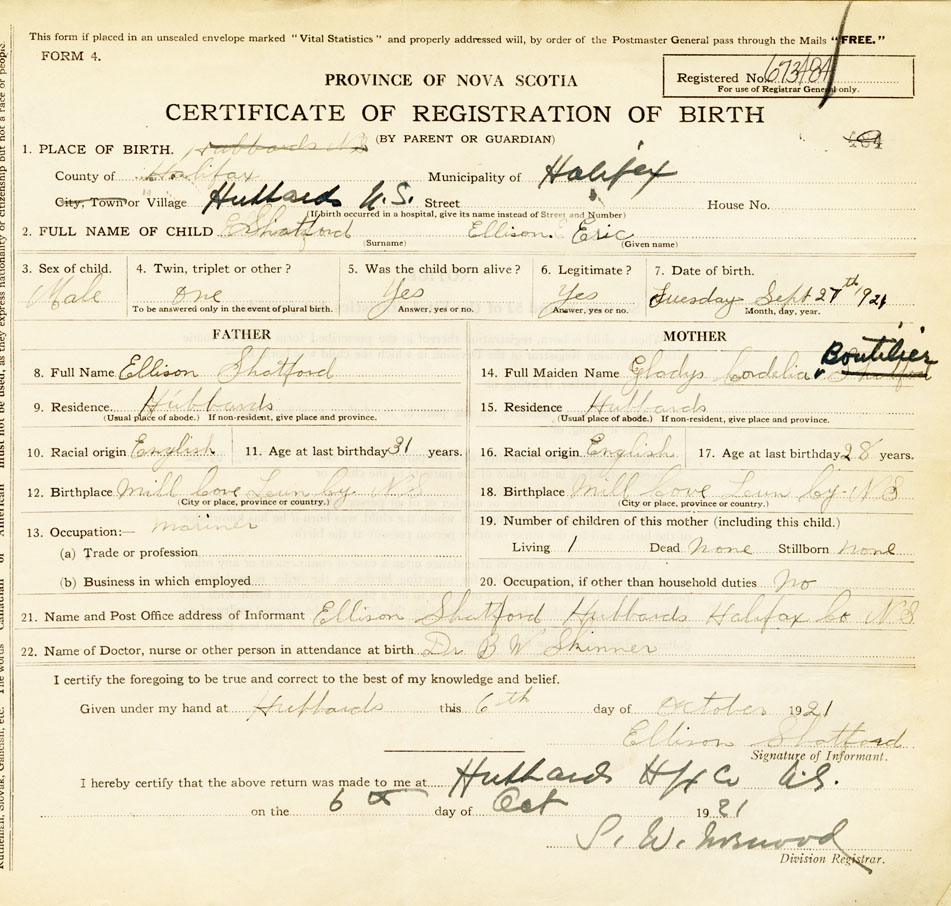 This form if placed in an unsealed envelope marked "Vital Statistics" and properly addressed will, by order of the Postmaster General pass through the Mails "FREE."
FORM 4.
PROVINCE OF NOVA SCOTIA
Registered No. 673484
For use of Registrar General only.
CERTIFICATE OF REGISTRATION OF BIRTH
(BY PARENT OR GUARDIAN)
1. PLACE OF BIRTH. Hubbards NS
County of Halifax Municipality of Halifax
City, Town or Village Hubbards N.S. Street House No.
(If birth occurred in a hospital, give its name instead of Street and Number)
2. FULL NAME OF CHILD Shatford Ellison Eric
(Surname) (Given name)
3. Sex of child. 4. Twin, triplet or other? 5. Was the child born alive? 6. Legitimate? 7. Date of birth.
Male one Yes Yes Tuesday Sept 27th 1921
To be answered only in the event of plural birth. Answer, yes or no. Answer, yes or no. Month, day, year.
FATHER MOTHER
8. Full Name Ellison Shatford 14. Full Maiden Name Gladys Cordelia Shatford Boutilier
9. Residence. Hubbards 15. Residence Hubbards
(Usual place of abode.) If non-resident, give place and province. (Usual place of abode.) If non-resident, give place and province.
10. Racial origin English 11. Age at last birthday 31 years. 16. Racial origin English 17. Age at last birthday 28 years.
12. Birthplace Mill Cove Lun by. N.S 18. Birthplace Mill Cove Lun by. N S
(City or place, province or country.) (City or place, province or country.)
13. Occupation:— mariner 19. Number of children of this mother (including this child.)
(a) Trade or profession Living 1 Dead None Stillborn none
(b) Business in which employed 20. Occupation, if other than household duties No
21. Name and Post Office address of Informant Ellison Shatford Hubbards Halifax Co N S
22. Name of Doctor, nurse or other person in attendance at birth Dr B W Skinner
I certify the foregoing to be true and correct to the best of my knowledge and belief.
Given under my hand at Hubbards this 6th day of October 1921
Ellison Shatford
Signature of Informant.
I hereby certify that the above return was made to me at Hubbards Hfx Co N.S.
on the 6th day of Oct 1921
S. W. Norwood
Division Registrar.